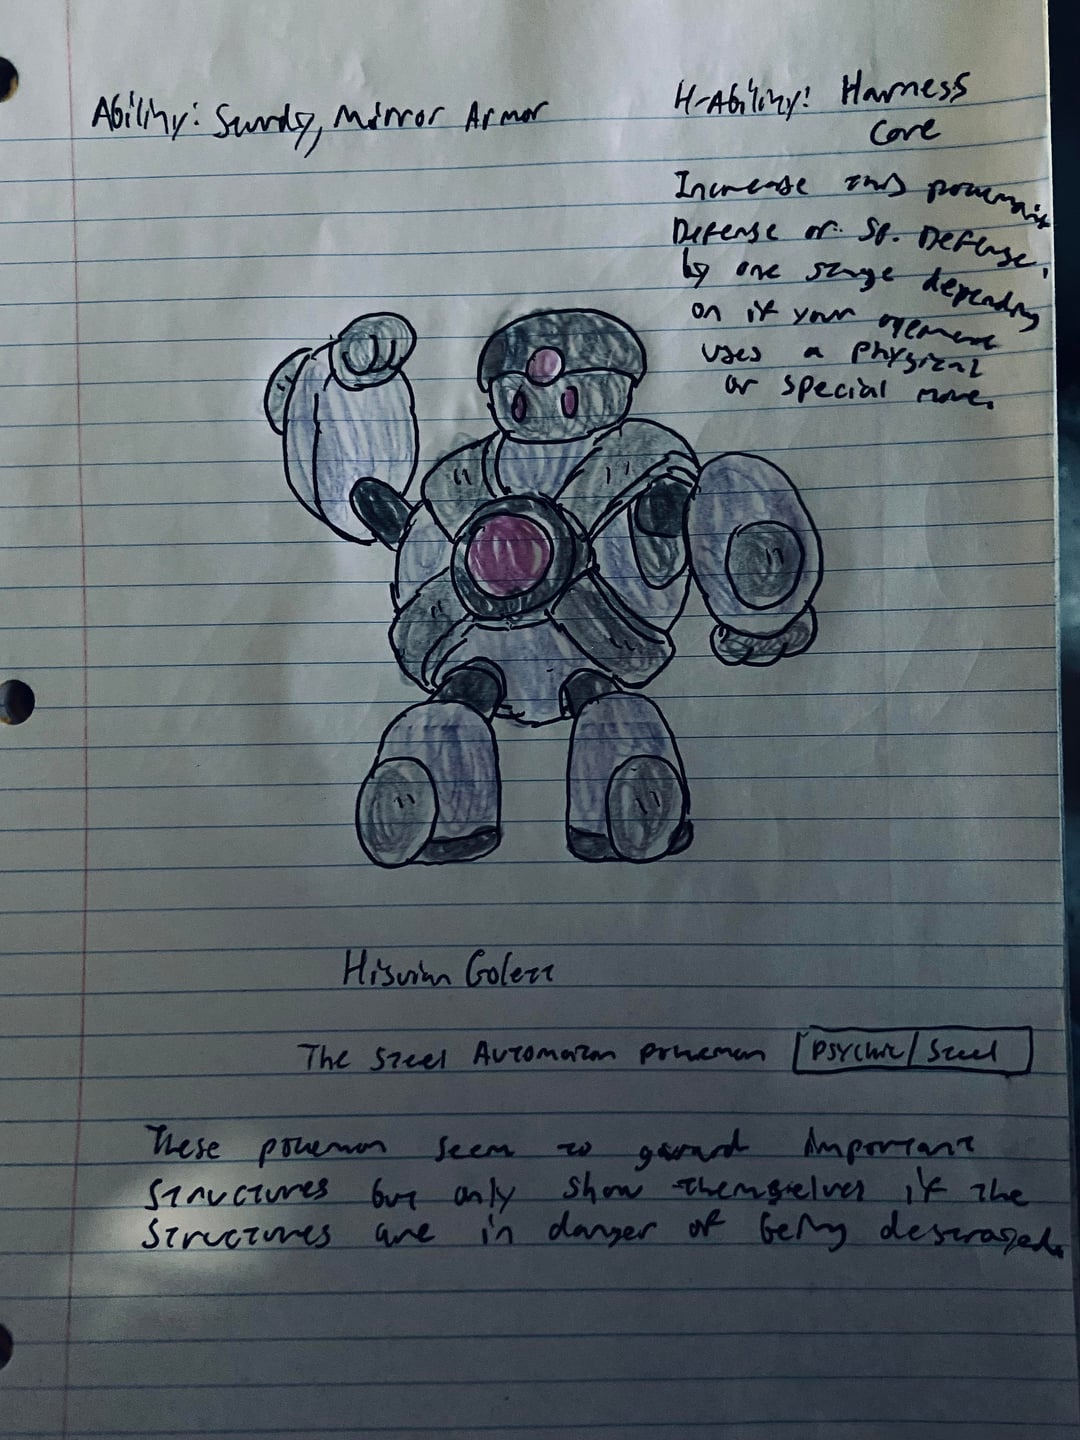 Ability: Sturdy, Mirror Armor
H-Ability: Harness
Core
Increase this pokemon's
Defense or Sp. Defense,
by one stage depending
on if your opponent
uses a physical
or special move.
Hisuian Golett
The Steel Automaton pokemon
Psychic/Steel
These pokemon seem to guard important
structures but only show themselves if the
structures are in danger of being destroyed.